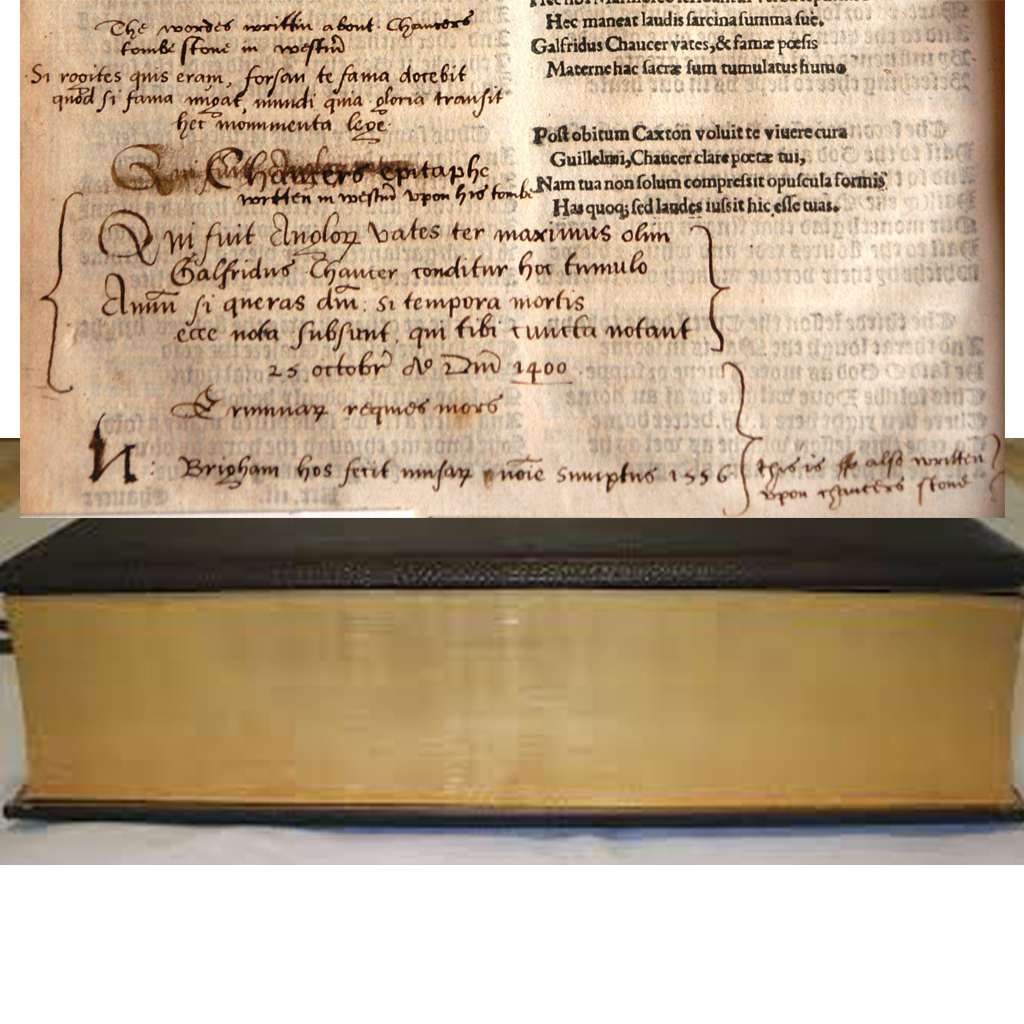 The wordes writtin about Chaucers
tombe stone in westm̄
Si rogites quis eram, forsan te fama docebit
quod si fama negat, mundi quia gloria transit
hec monimenta lege.
Chaucers Epitaphe
written in westm̄ vpon his tombe
Qui fuit Angloꝝ vates ter maximus olim
Galfridus Chaucer conditur hoc tumulo
Annū si queras dm̄: si tempora mortis
ecce nota subsunt, que tibi cuncta notant
25 octobr̄ Ao Dm̄ 1400
Erumnaꝝ requies mors
N: Brigham hos fecit musaꝝ nōie sumptus 1556
this is also written
vpon chaucers stone
Hec maneat laudis sarcina summa suę.
Galfridus Chaucer vates, & famæ poesis
Maternę hac sacræ sum tumulatus humo
Post obitum Caxton voluit te viuere cura
Guillelmi, Chaucer clare poetæ tui,
Nam tua non solum compressit opuscula formis
Has quoqꝫ sed laudes iussit hic esse tuas.